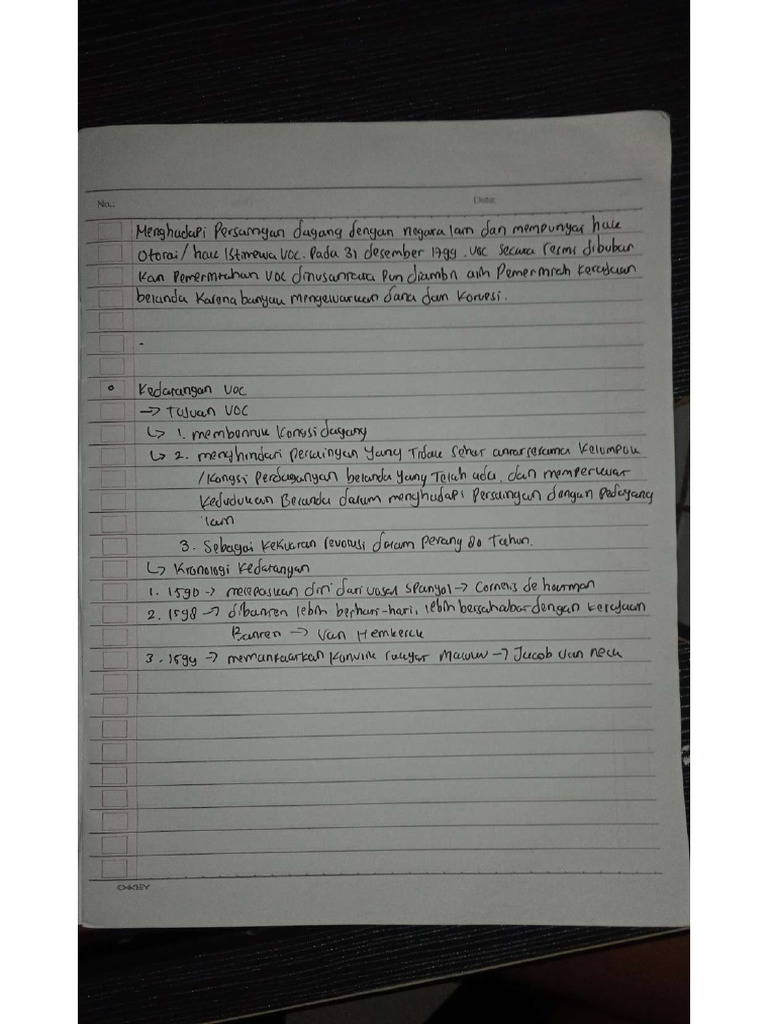 No.: Date:
Menghadapi Persaingan dagang dengan negara lain dan mempunyai hak
Otorai / hak Istimewa VOC. Pada 31 desember 1799. VOC secara resmi dibubar
kan Pemerintahan VOC dinusantara pun diambil alih Pemerintah kerajaan
belanda Karena banyak mengeluarkan dana dan Korupsi.
Kedatangan VOC
→ Tujuan VOC
↳ 1. membentuk Kongsi dagang
↳ 2. menghindari persaingan yang Tidak Sehat antar sesama Kelompok
/ Kongsi Perdagangan belanda yang Telah ada, dan memperkuat
Kedudukan Belanda dalam menghadapi Persaingan dengan Pedagang
lain
3. Sebagai Kekuatan revolusi dalam perang 80 Tahun.
↳ Kronologi Kedatangan
1. 1590 → melepaskan diri dari vasal Spanyol → Cornelis de houtman
2. 1598 → dibanten lebih berhati-hati, lebih bersahabat dengan kerajaan
Banten → Van Hemkerck
3. 1599 → memanfaatkan Konflik rakyat Maluku → Jacob Van neck